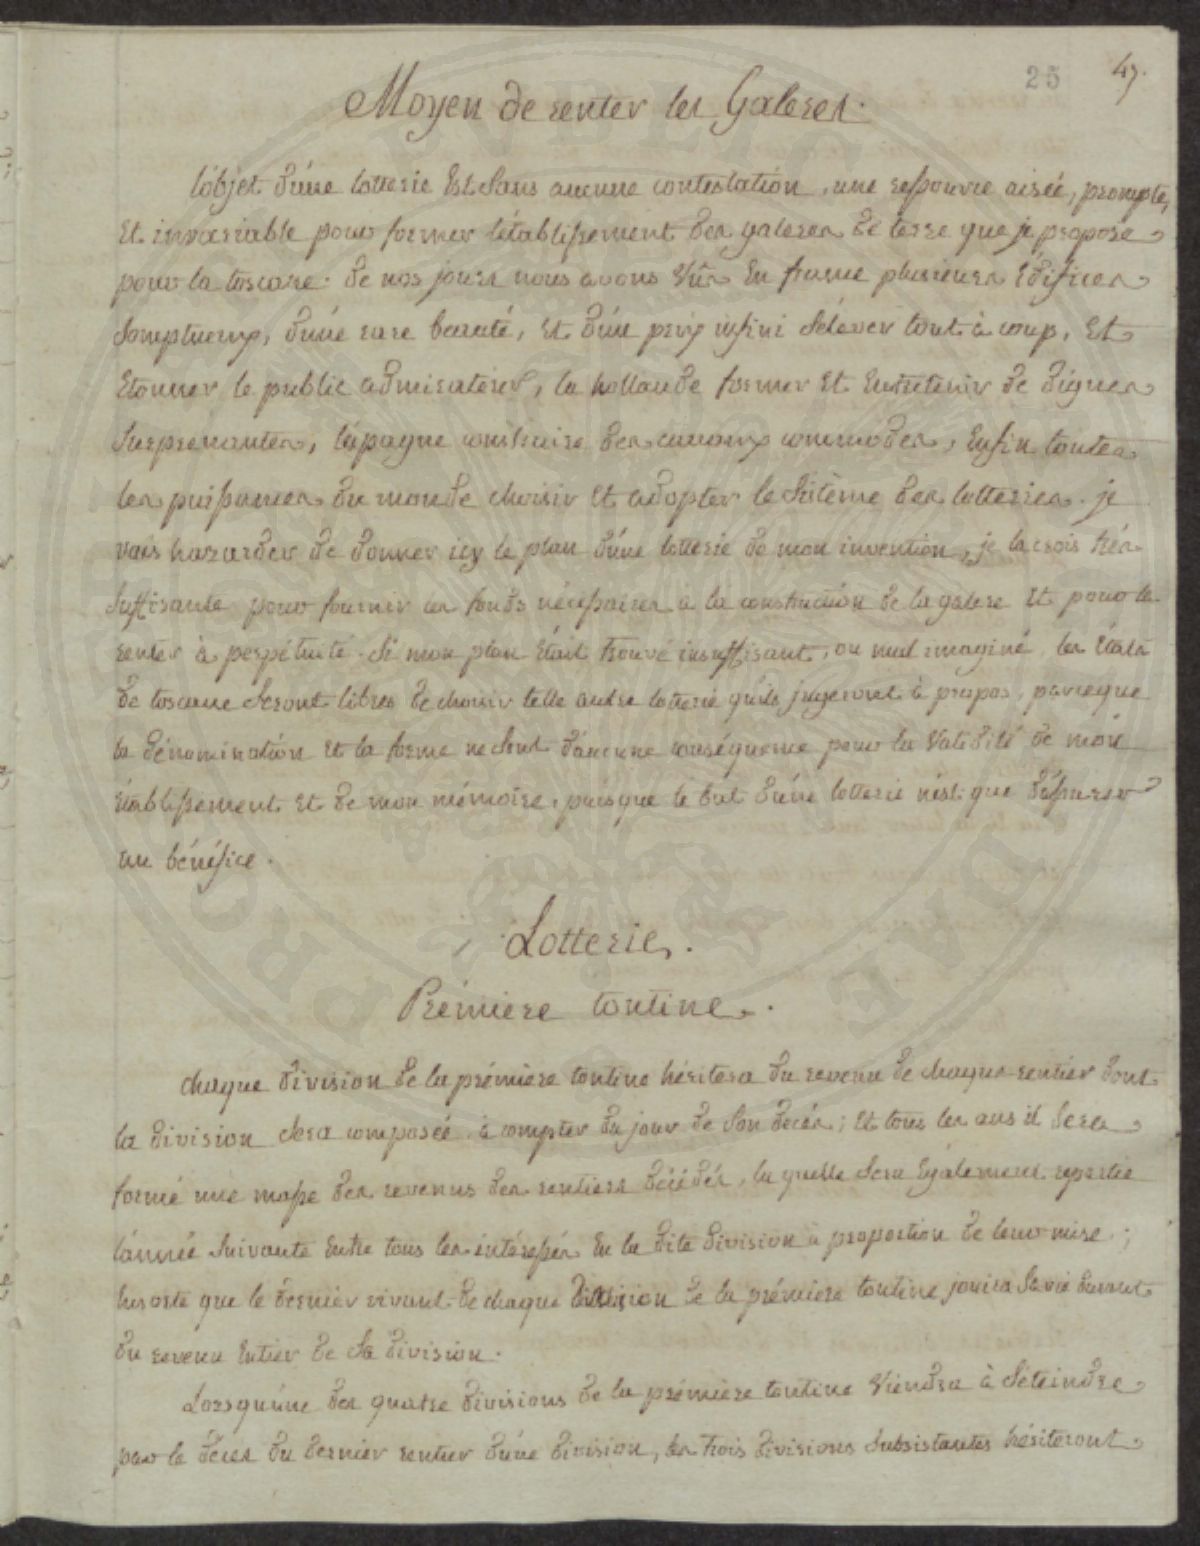 25 49.
Moyen de renter les Galeres.
l'objet d'une lotterie Est sans aucune contestation, une ressource aisée, prompte,
Et invariable pour former l'établissement des galeres de terre que je propose
pour la toscane. de nos jours nous avons vûs En france plusieurs Edifices
somptueux, d'une rare beauté, Et d'un prix infini s'élever tout à coup, Et
Etonner le public admirateur, la hollande former Et Entretenir de digues
surprenantes, l'espagne construire des canaux commodes, Enfin toutes
les puissances du monde choisir Et adopter le sistême des lotteries. je
vais hazarder de donner icy le plan d'une lotterie de mon invention, je la crois très
suffisante pour fournir les fonds nécessaires à la construction de la galere Et pour la
renter à perpétuité. si mon plan était trouvé insuffisant, ou mal imaginé, les Etats
de toscane seront libres de choisir telle autre lotterie qu'ils jugeront à propos, parceque
la dénomination Et la forme ne sont d'aucune conséquence pour la validité de mon
établissement Et de mon mémoire, puisque le but d'une lotterie n'est que d'assurer
un bénéfice.
Lotterie.
Prémiere tontine.
chaque division de la prémiere tontine héritera du revenu de chaque rentier dont
la division sera composée, à compter du jour de son decès; Et tous les ans il sera
formé une masse des revenus des rentiers décédés, la quelle sera Egalement repartie
l'année suivante Entre tous les intéressés En la dite division à proportion de leur mise;
Ensorte que le dernier vivant de chaque division de la prémiere tontine jouira sa vie durant
du revenu Entier de sa division.
Lorsqu'une des quatre divisions de la prémiere tontine viendra à s'éteindre
par le décès du dernier rentier d'une division, les trois divisions subsistantes hériteront